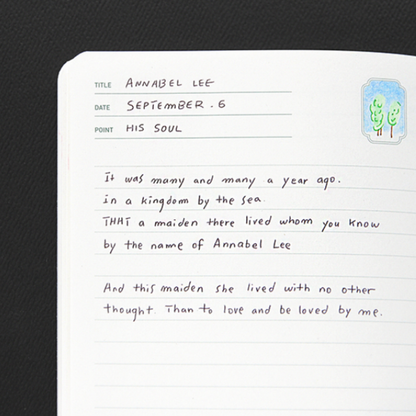 TITLE ANNABEL LEE
DATE SEPTEMBER . 6
POINT HIS SOUL
It was many and many a year ago.
in a kingdom by the sea.
THAT a maiden there lived whom you know
by the name of Annabel Lee
And this maiden she lived with no other
thought. Than to love and be loved by me.